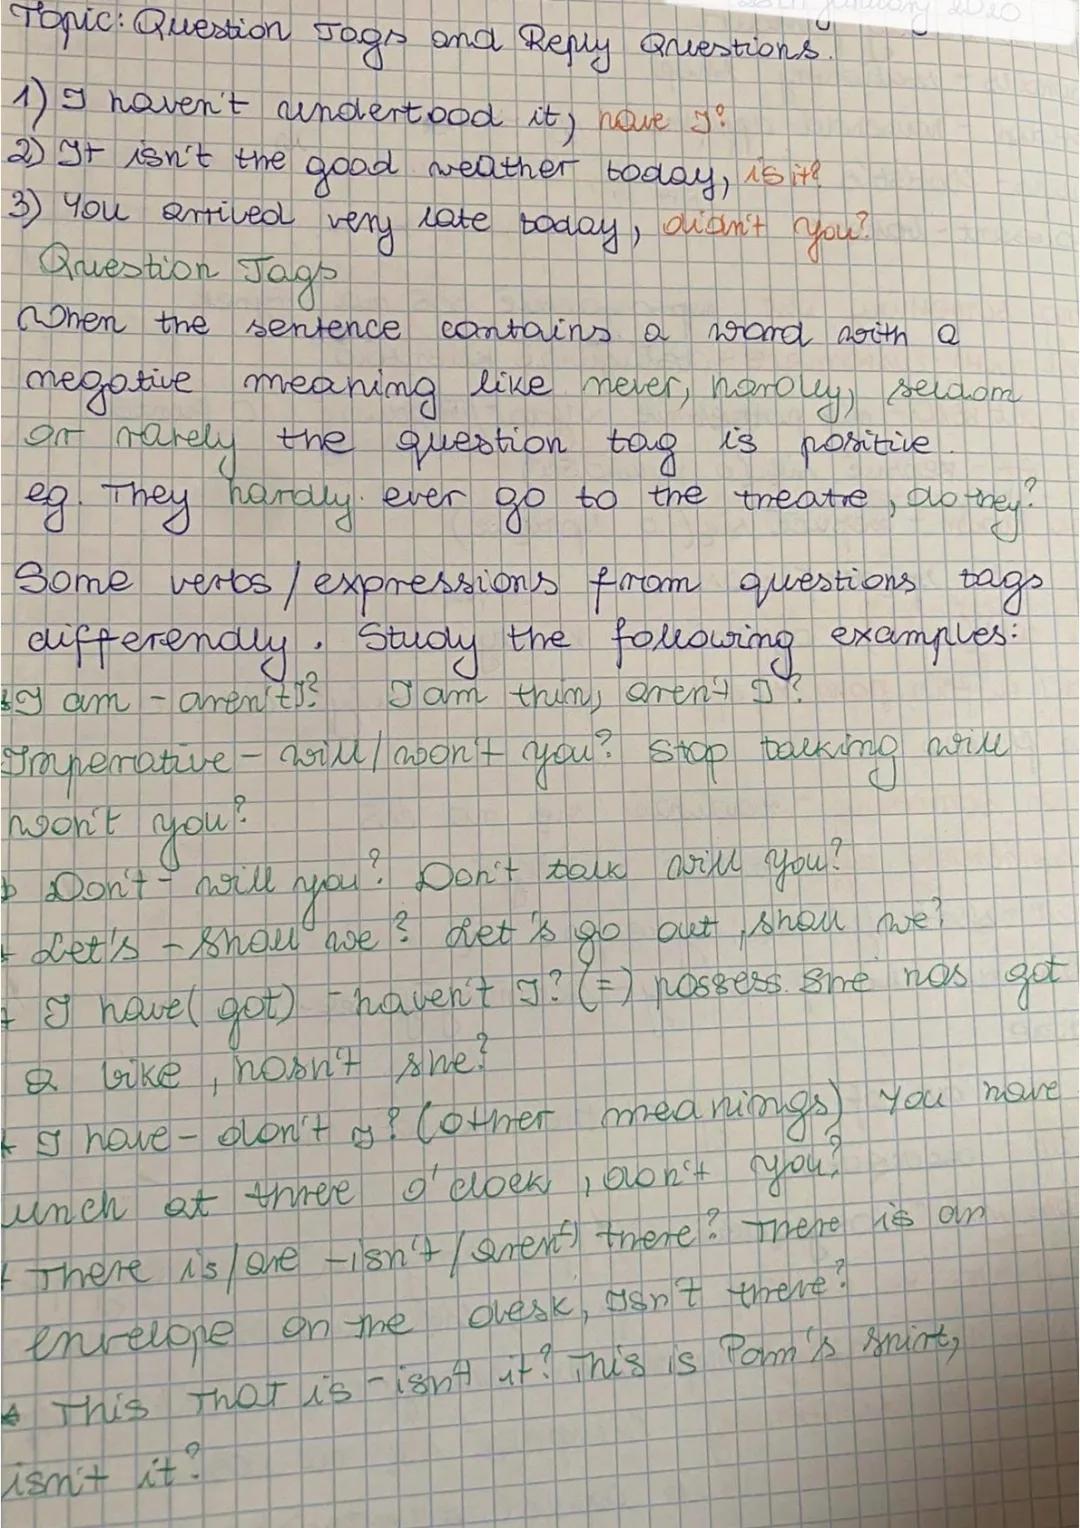 January 2020
Topic: Question Tags and Reply Questions.
1) I haven't undertood it, have I?
2) It isn't the good weather today, is it?
3) You arrived very late today, didn't you?
Question Tags
When the sentence contains a word with a
negative meaning like never, hardly, seldom
or rarely the question tag is positive.
eg. They hardly ever go to the treatre, do they?
Some verbs / expressions from questions tags
differendly. Study the following examples:
I am - aren't I? I am thin, aren't I?
Imperative - will/won't you? Stop talking will
won't you?
Don't - will you? Don't talk will you?
Let's - shall we? Let's go out, shall we?
I have (got) - haven't I? (=) possess. She has got
a bike, hasn't she?
I have - don't I? (other meanings) You have
unch at three o'clock, don't you?
There is/are - isn't / aren't) there? There is an
envelope on the desk, isn't there?
This That is - isn't it? This is Pam's shirt,
isn't it?